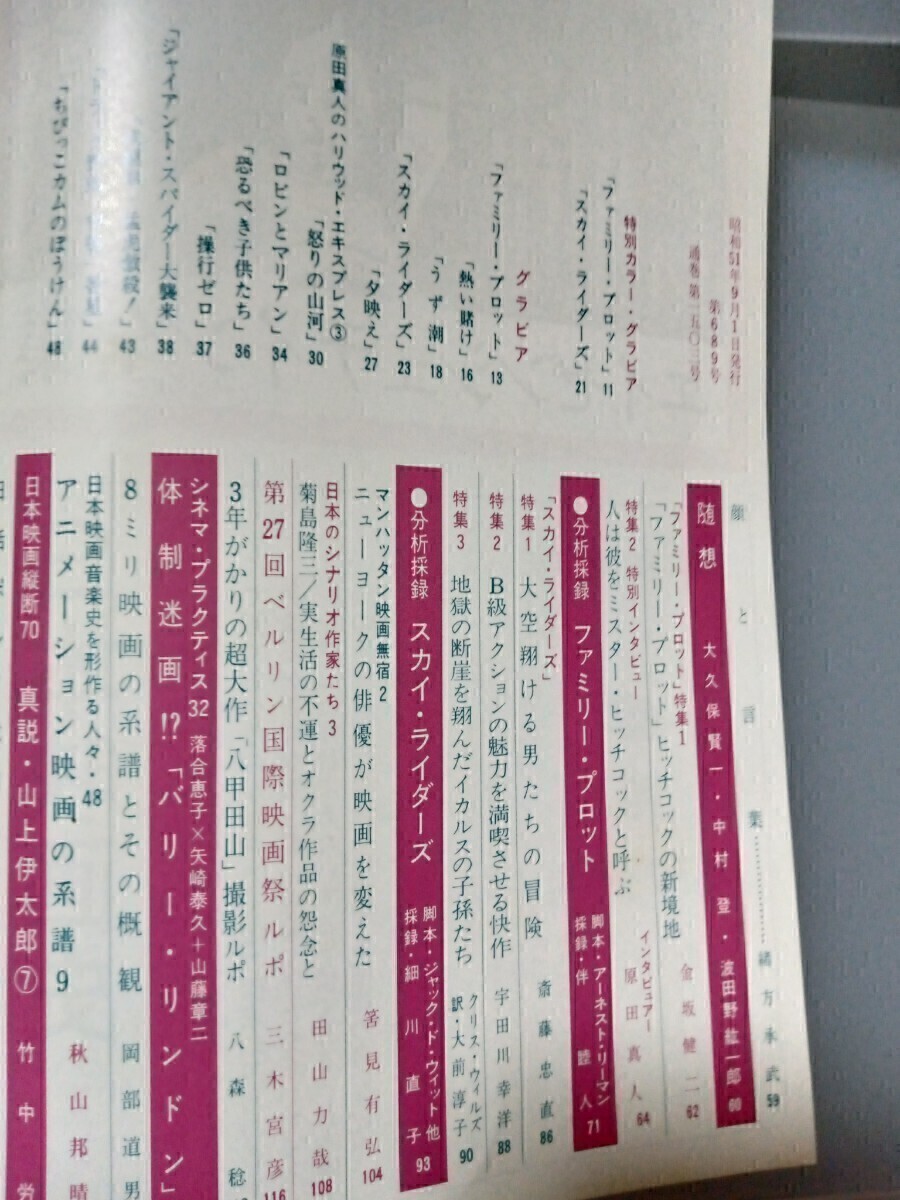 昭和51年9月1日発行
第689号
通巻第一五〇三号
特別カラー・グラビア
「ファミリー・プロット」11
「スカイ・ライダーズ」21
グラビア
「ファミリー・プロット」13
「熱い賭け」16
「うず潮」18
「スカイ・ライダーズ」23
「夕映え」27
原田真人のハリウッド・エキスプレス③
「怒りの山河」30
「ロビンとマリアン」34
「恐るべき子供たち」36
「操行ゼロ」37
「ジャイアント・スパイダー大襲来」38
43
44
「ちびっこカムのぼうけん」48
顔と言葉……………緒方永武 59
随想 大久保賢一・中村登・波田野紘一郎 60
「ファミリー・プロット」特集1
「ファミリー・プロット」ヒッチコックの新境地 金坂健二 62
特集2 特別インタビュー
人は彼をミスター・ヒッチコックと呼ぶ インタビュアー 原田真人 64
●分析採録 ファミリー・プロット 脚本・アーネスト・リーマン 採録・伴睦人 71
「スカイ・ライダーズ」
特集1 大空翔ける男たちの冒険 斎藤忠直 86
特集2 B級アクションの魅力を満喫させる快作 宇田川幸洋 88
特集3 地獄の断崖を翔んだイカルスの子孫たち クリス・ウィルズ 訳・大前淳子 90
●分析採録 スカイ・ライダーズ 脚本・ジャック・ド・ウィット他 採録・細川直子 93
マンハッタン映画無宿2
ニューヨークの俳優が映画を変えた 筈見有弘 104
日本のシナリオ作家たち3
菊島隆三/実生活の不運とオクラ作品の怨念と 田山力哉 108
第27回ベルリン国際映画祭ルポ 三木宮彦 116
3年がかりの超大作「八甲田山」撮影ルポ 八森稔
シネマ・プラクティス32 落合恵子×矢崎泰久+山藤章二
体制迷画!?「バリー・リンドン」
8ミリ映画の系譜とその概観 岡部道男
日本映画音楽史を形作る人々・48
アニメーション映画の系譜9 秋山邦晴
日本映画縦断70 真説・山上伊太郎⑦ 竹中労